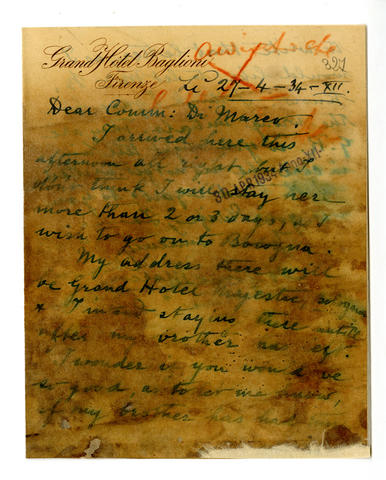 Grand Hotel Baglioni
Firenze
327
Li 27-4-34-XII.
Dear Comm: Di Marco:
I arrived here this
afternoon all right, but I
don't think I will stay here
more than 2 or 3 days, as I
wish to go on to Bologna.
My address there will
be Grand Hotel Majestic Bologna
& I'm staying there until
after my brother
I wonder if you would be
so good, as to let me know,
if my brother has had